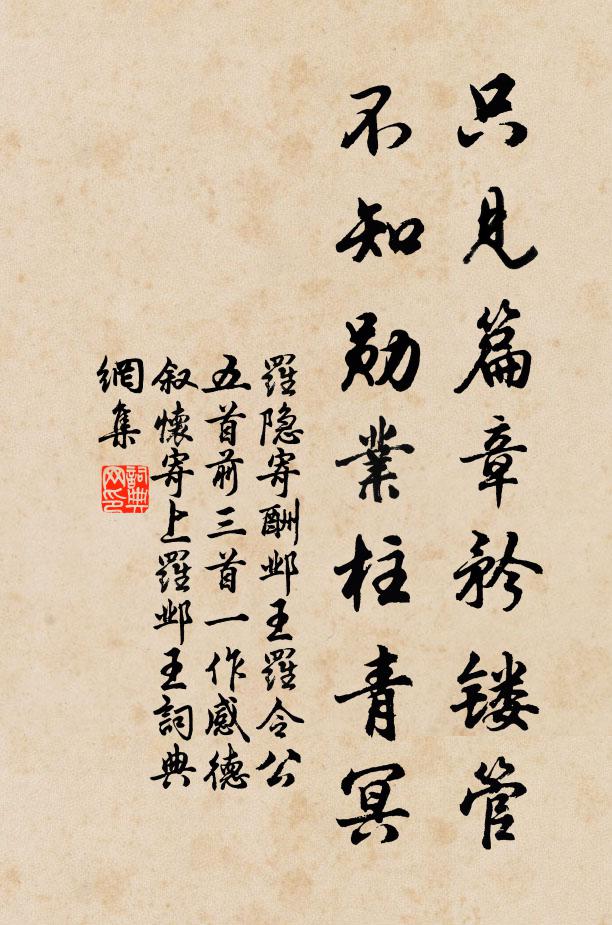 只见篇章矜镂管
不知勋業柱青冥
羅隐寄酬邺王羅令公
五首前三首一作感德
叙懷寄上羅邺王詞典
網集
詞典
网印